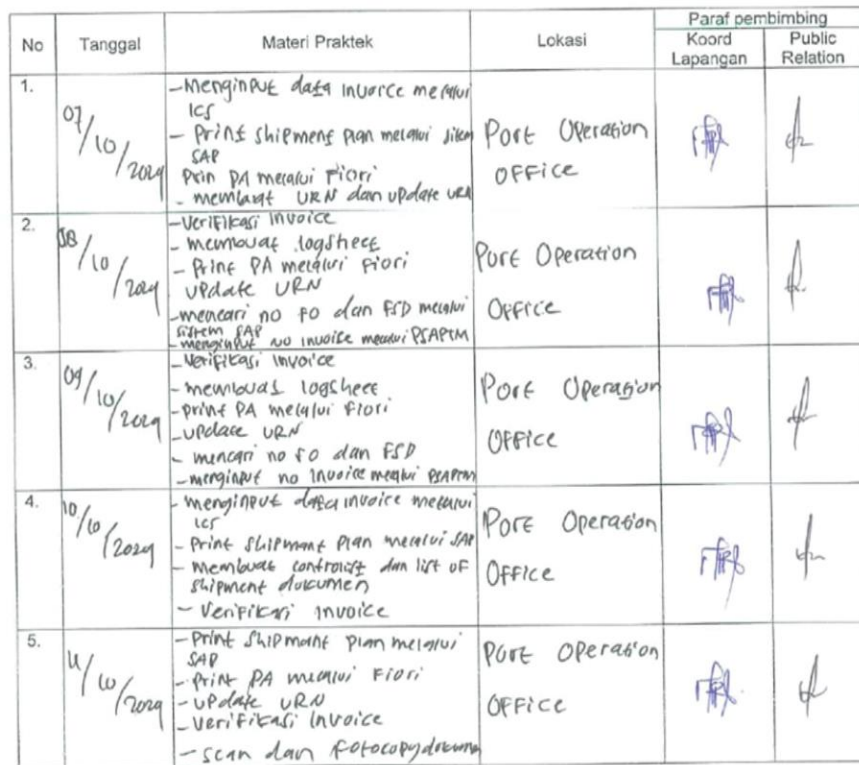 No Tanggal Materi Praktek Lokasi Paraf pembimbing
Koord Lapangan Public Relation
1.
07/10/2024
- Menginput data invoice melalui
ICS
- Print shipment plan melalui sitem
SAP
Prin PA melalui Fiori
- membuat URN dan update URN
Port Operation
OFFice
2.
08/10/2024
- Verifikasi invoice
- membuat logsheet
- Print PA melalui Fiori
update URN
- mencari no FO dan FSD melalui
sistem SAP
- menginput no invoice melalui PSAPTM
Port Operation
OFFice
3.
09/10/2024
- Verifikasi invoice
- membuat logsheet
- print PA melalui Fiori
- update URN
- mencari no FO dan FSD
- menginput no invoice melalui PSAPTM
Port Operation
OFFice
4.
10/10/2024
- menginput data invoice melalui
ICS
- Print shipmant plan melalui SAP
- membuat controlist dan list of
shipment dokumen
- Verifikasi invoice
Port Operation
Office
5.
11/10/2024
- Print shipmant plan melalui
SAP
- Print PA melalui Fiori
- update URN
- Verifikasi invoice
- scan dan fotocopy dokumen
Port Operation
OFFice